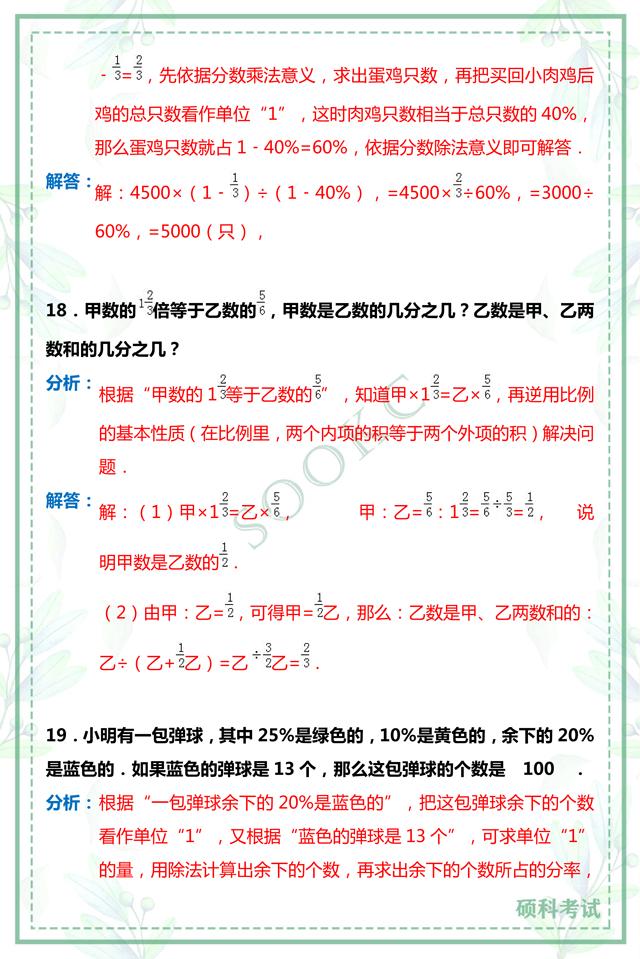 －1/3=2/3，先依据分数乘法意义，求出蛋鸡只数，再把买回小肉鸡后
鸡的总只数看作单位“1”，这时肉鸡只数相当于总只数的 40%，
那么蛋鸡只数就占 1－40%=60%，依据分数除法意义即可解答．
解答：解：4500×（1－1/3）÷（1－40%），=4500×2/3÷60%，=3000÷
60%，=5000（只），
18．甲数的 1 2/3倍等于乙数的5/6，甲数是乙数的几分之几？乙数是甲、乙两
数和的几分之几？
分析：根据“甲数的 1 2/3等于乙数的5/6”，知道甲×1 2/3=乙×5/6，再逆用比例
的基本性质（在比例里，两个内项的积等于两个外项的积）解决问
题．
解答：解：（1）甲×1 2/3=乙×5/6， 甲：乙=5/6：1 2/3=5/6÷5/3=1/2， 说
明甲数是乙数的1/2．
（2）由甲：乙=1/2，可得甲=1/2乙，那么：乙数是甲、乙两数和的：
乙÷（乙+1/2乙）=乙÷3/2乙=2/3．
19．小明有一包弹球，其中 25%是绿色的，10%是黄色的，余下的 20%
是蓝色的．如果蓝色的弹球是 13 个，那么这包弹球的个数是 100 ．
分析：根据“一包弹球余下的 20%是蓝色的”，把这包弹球余下的个数
看作单位“1”，又根据“蓝色的弹球是 13 个”，可求单位“1”
的量，用除法计算出余下的个数，再求出余下的个数所占的分率，
SOOKC
硕科考试